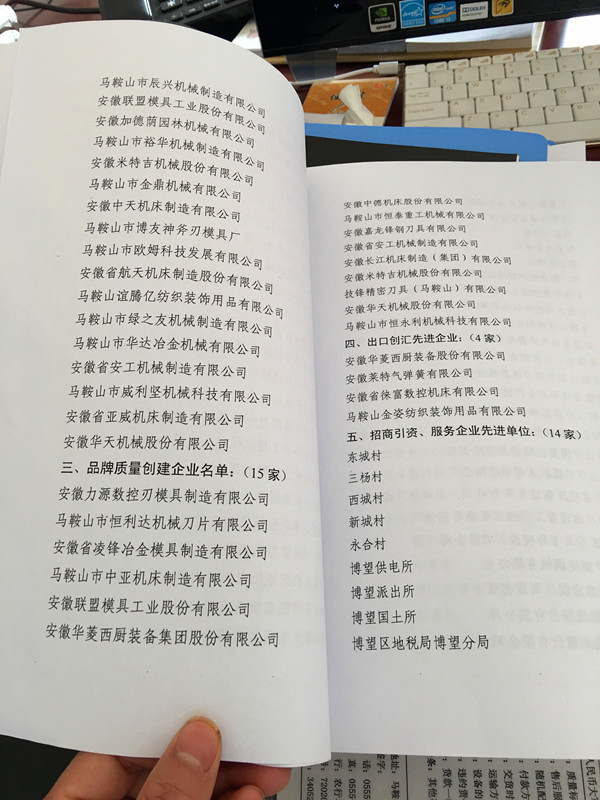 马鞍山市辰兴机械制造有限公司
安徽联盟模具工业股份有限公司
安徽加德荫园林机械有限公司
马鞍山市裕华机械制造有限公司
安徽米特吉机械股份有限公司
马鞍山市金鼎机械有限公司
安徽中天机床制造有限公司
马鞍山市博友神斧刃模具厂
马鞍山市欧姆科技发展有限公司
安徽省航天机床制造股份有限公司
马鞍山谊腾亿纺织装饰用品有限公司
马鞍山市绿之友机械制造有限公司
马鞍山市华达冶金机械有限公司
安徽省安工机械制造有限公司
马鞍山市威利坚机械科技有限公司
安徽省亚威机床制造有限公司
安徽华天机械股份有限公司
三、品牌质量创建企业名单：（15家）
安徽力源数控刃模具制造有限公司
马鞍山市恒利达机械刀片有限公司
安徽省凌锋冶金模具制造有限公司
马鞍山市中亚机床制造有限公司
安徽联盟模具工业股份有限公司
安徽华菱西厨装备集团股份有限公司
安徽中德机床股份有限公司
马鞍山市恒泰重工机械有限公司
安徽嘉龙锋钢刀具有限公司
安徽省安工机械制造有限公司
安徽长江机床制造（集团）有限公司
安徽米特吉机械股份有限公司
技锋精密刀具（马鞍山）有限公司
安徽华天机械股份有限公司
马鞍山市恒永利机械科技有限公司
四、出口创汇先进企业：（4家）
安徽华菱西厨装备股份有限公司
安徽莱特气弹簧有限公司
安徽省徕富数控机床有限公司
马鞍山金姿纺织装饰用品有限公司
五、招商引资、服务企业先进单位：（14家）
东城村
三杨村
西城村
新城村
永合村
博望供电所
博望派出所
博望国土所
博望区地税局博望分局